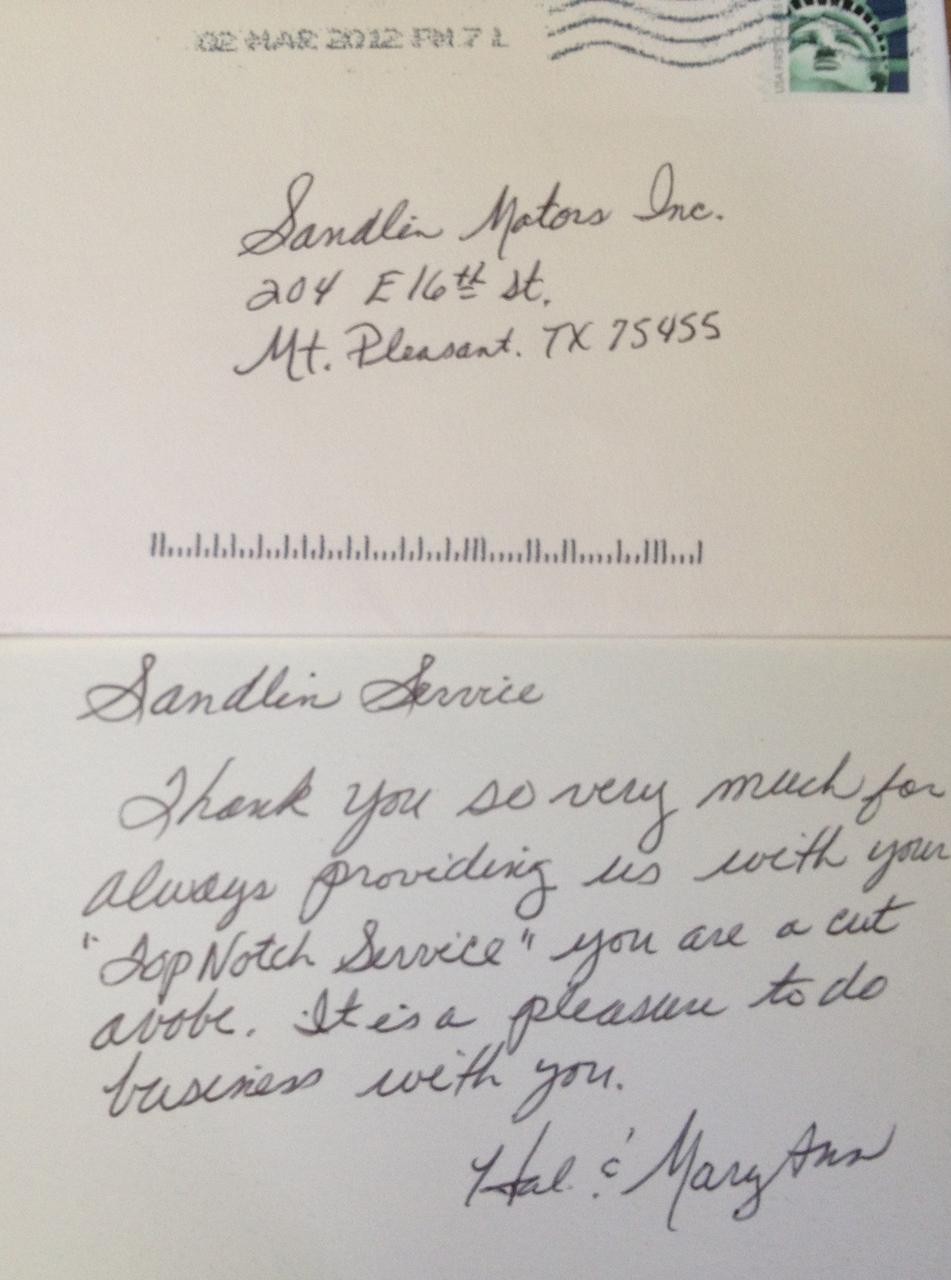 02 MAR 2012 PM 7 L
USA FIRST
Sandlin Motors Inc.
204 E 16th St.
Mt. Pleasant. TX 75455
Sandlin Service
Thank you so very much for
always providing us with your
"Top Notch Service" you are a cut
avobe. It is a pleasure to do
business with you.
Hal & Mary Ann